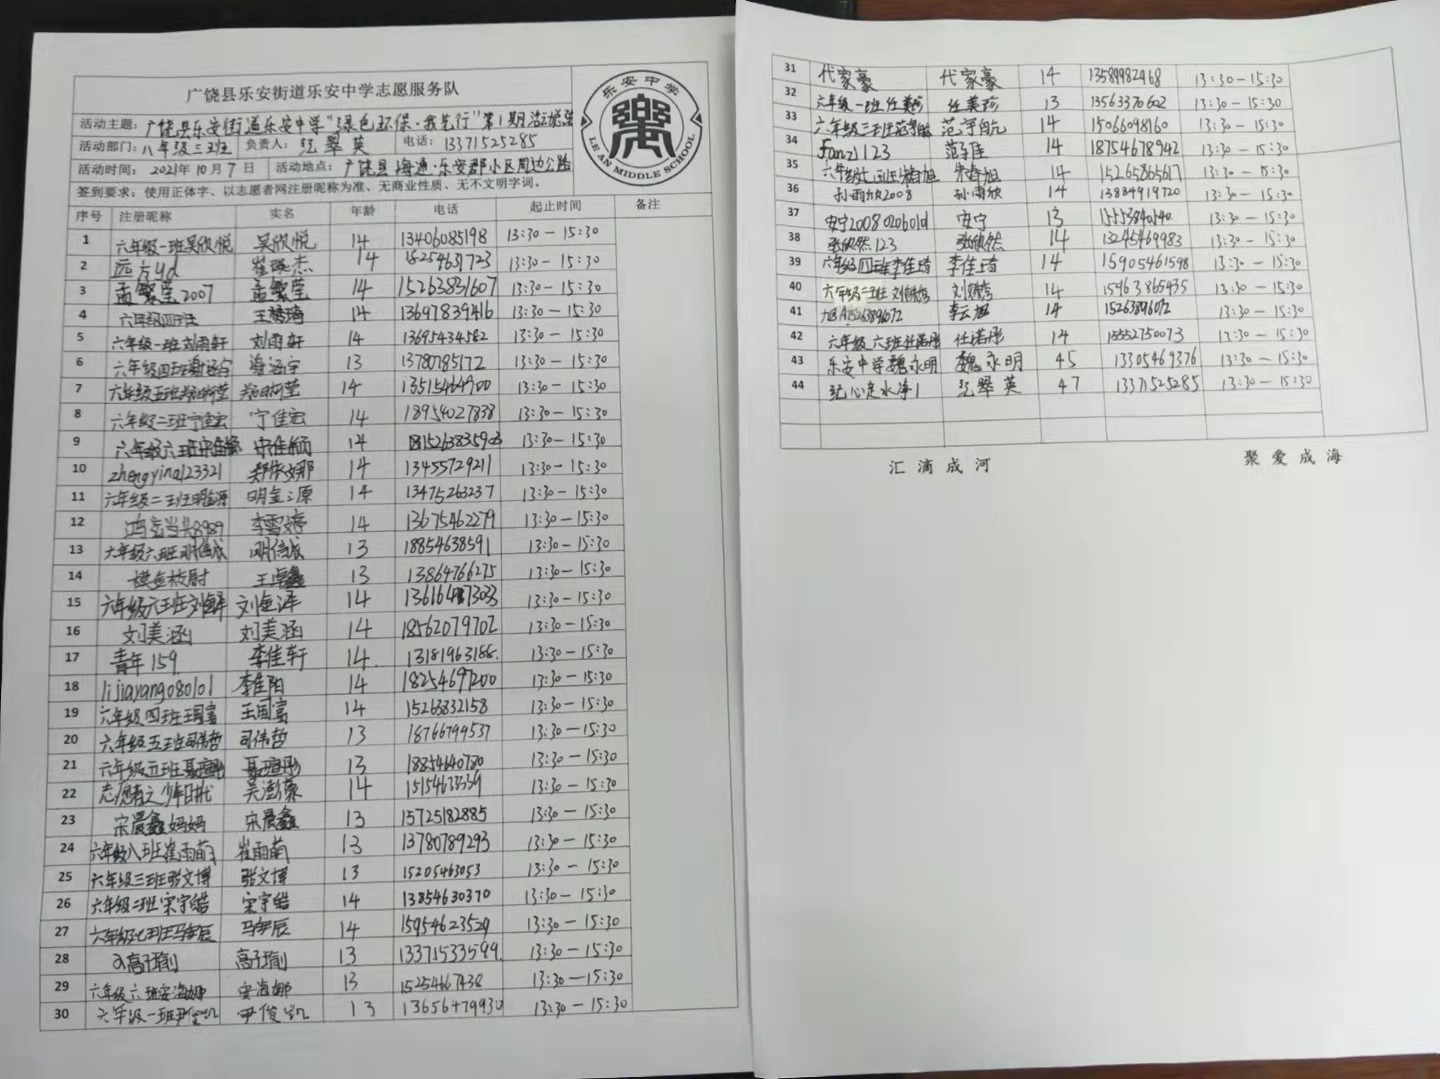 广饶县乐安街道乐安中学志愿服务队
乐安中学
LE AN MIDDLE SCHOOL
活动主题：广饶县乐安街道乐安中学"绿色环保·我先行"第1期活动
活动部门：八年级三班 负责人：纪翠英 电话：13371525285
活动时间：2021年10月7日 活动地点：广饶县海通·乐安郡小区周边公路
签到要求：使用正体字、以志愿者网注册昵称为准、无商业性质、无不文明字词。
序号 注册昵称 实名 年龄 电话 起止时间 备注
1 六年级一班吴欣悦 吴欣悦 14 13406085198 13:30-15:30
2 远方yd 崔瑛杰 14 18254631723 13:30-15:30
3 孟繁莹2007 孟繁莹 14 15263831607 13:30-15:30
4 六年级四班 王梦琦 14 13697839416 13:30-15:30
5 六年级一班刘雨轩 刘雨轩 14 13695434582 13:30-15:30
6 六年级四班 13 13780785172 13:30-15:30
7 六年级五班 14 13515464900 13:30-15:30
8 六年级二班宁佳宏 宁佳宏 14 18954027838 13:30-15:30
9 六年级六班 14 13:30-15:30
10 zhengyina123321 14 13455729211 13:30-15:30
11 六年级二班明金源 明金源 14 13475263237 13:30-15:30
12 李雪婷 14 13675462279 13:30-15:30
13 六年级六班明信成 明信成 13 18854638591 13:30-15:30
14 王卓鑫 13 13864766275 13:30-15:30
15 六年级六班刘金泽 刘金泽 14 13:30-15:30
16 刘美涵 刘美涵 14 18562079702 13:30-15:30
17 青年159 李佳轩 14 13181963186 13:30-15:30
18 lijiayang080101 李佳阳 14 18254697200 13:30-15:30
19 六年级四班王国富 王国富 14 15263832158 13:30-15:30
20 六年级五班司伟哲 司伟哲 13 18766799537 13:30-15:30
21 六年级五班 13 18854640780 13:30-15:30
22 志愿者之少年 吴澎霖 14 13:30-15:30
23 宋晨鑫妈妈 宋晨鑫 13 15725182885 13:30-15:30
24 六年级八班崔雨萌 崔雨萌 13 13780789293 13:30-15:30
25 六年级三班张文博 张文博 13 15205463053 13:30-15:30
26 六年级二班宋宇皓 宋宇皓 14 13854630370 13:30-15:30
27 六年级七班 14 15954623529 13:30-15:30
28 高子瑜 高子瑜 13 13371533599 13:30-15:30
29 六年级六班安海娜 安海娜 13 15254667438 13:30-15:30
30 六年级一班尹俊凯 尹俊凯 13 13656479930 13:30-15:30
31 代家豪 代家豪 14 13589982468 13:30-15:30
32 六年级一班任美珍 任美珍 13 13563370602 13:30-15:30
33 六年级三班范宇航 范宇航 14 15066098160 13:30-15:30
34 范子佳 14 18754678942 13:30-15:30
35 六年级七班 14 15265865617 13:30-15:30
36 孙雨欣2008 孙雨欣 14 13884919720 13:30-15:30
37 安宁20080206 安宁 13 13:30-15:30
38 张欣然123 张欣然 14 13245469983 13:30-15:30
39 六年级四班李佳琦 李佳琦 14 15905461598 13:30-15:30
40 六年级二班 14 15963865435 13:30-15:30
41 李云旭 14 15263896072 13:30-15:30
42 六年级六班任诺彤 任诺彤 14 15552750073 13:30-15:30
43 乐安中学魏永明 魏永明 45 13305469376 13:30-15:30
44 纪心是水净1 纪翠英 47 13371525285 13:30-15:30
汇滴成河 聚爱成海